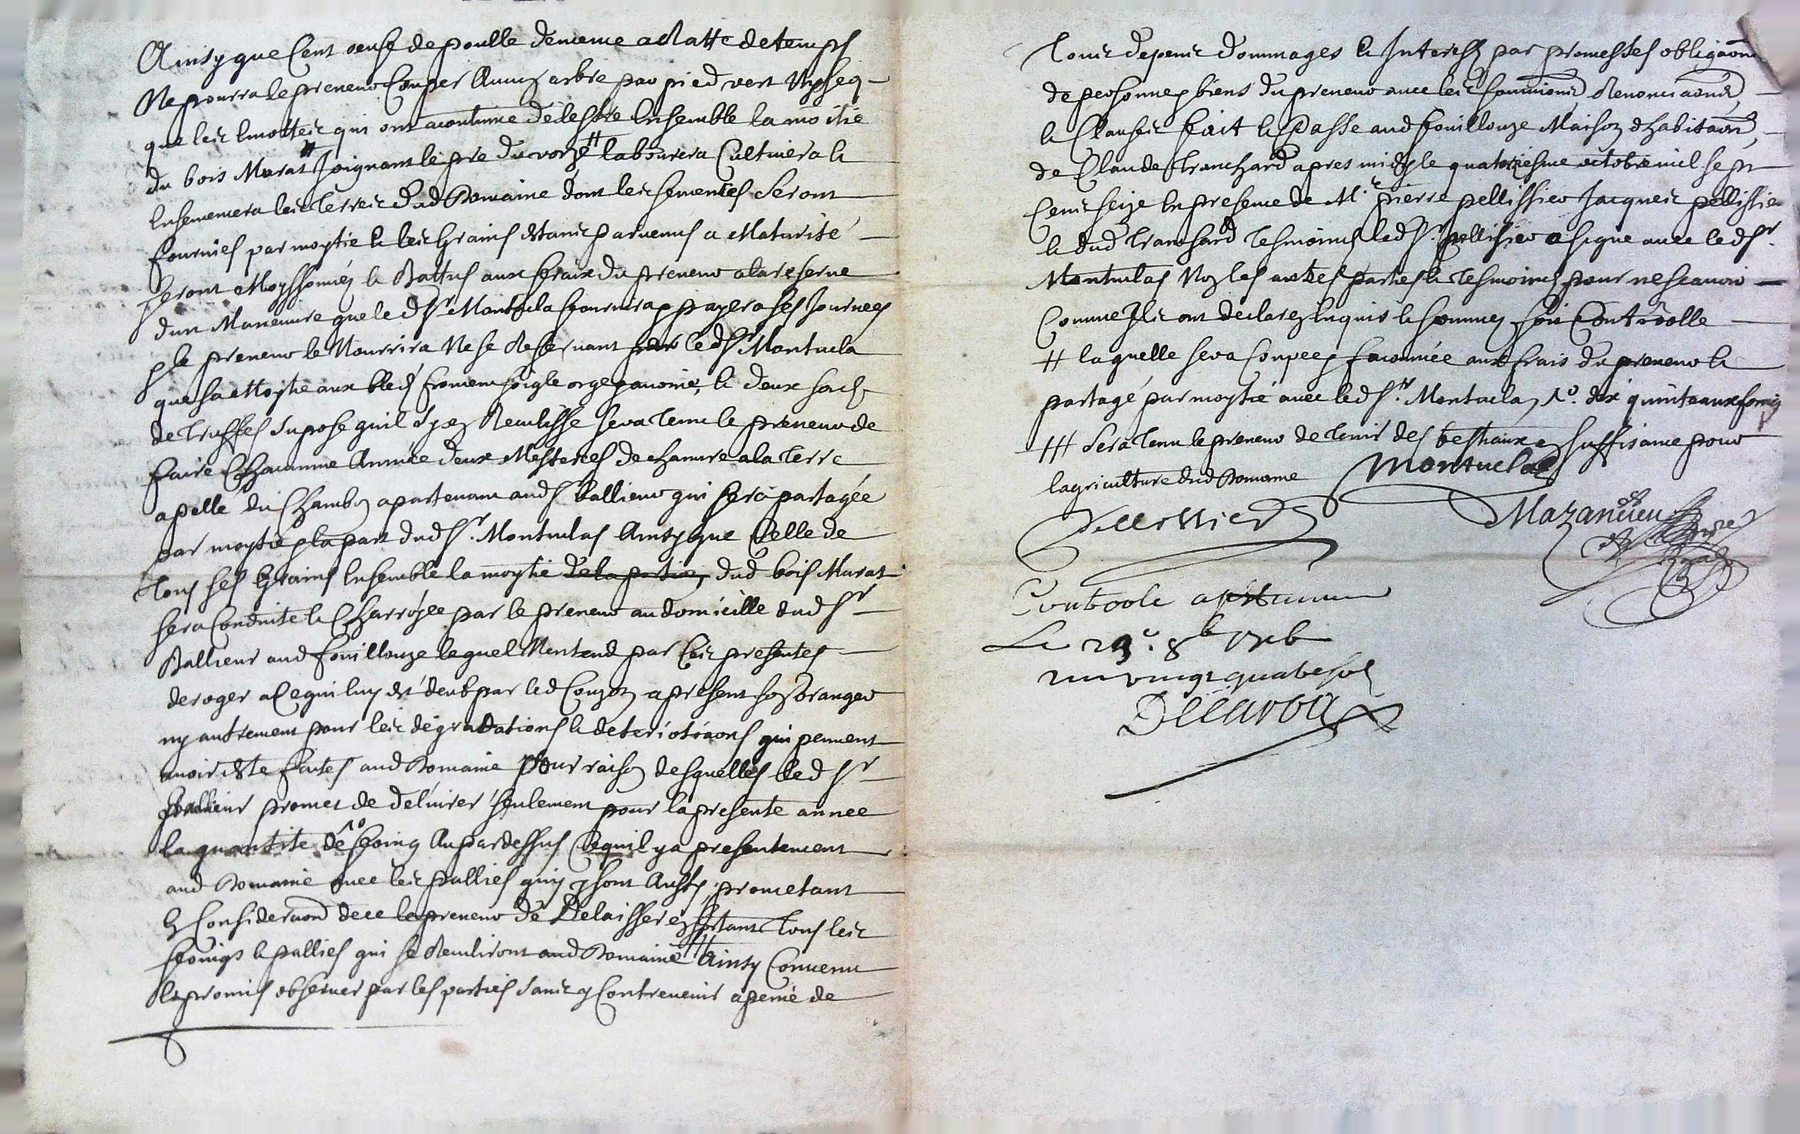 Ainsy que Cent oeufs de poulle de meme a datte de temps
Ne pourra le preneur Couper Aucun arbre par pied vert ny secq
que les emotteis qui ont acoutumé de lestre Ensemble la moitié
du bois Murat # Joignant le pré du vorzé # labourera Cultivera Et
Ensemencera les Terres dud Domaine dont les semences seront
fournies par moytié Et les Grains Estants parvenus a Maturité
seront Moyssonnés Et Battus aux fraix du preneur a la reserve
dun Maneuvre que led Sr Montucla fournira & payera ses Journees
& le preneur le Nourrira Ne se Reservant led Sr Montucla
que sa Moytié aux bleds froment soigle orge & avoine, Et deux sacs
de Truffes suposé quil s'y en Reculisse sera Tenu le preneur de
faire Chacunne Année deux Mesteres de chanvre a la Terre
apellé du Chambon apartenant aud Sr Ballieur qui sera partagée
par moytié & la part dud Sr. Montuclas Ainsy que Celle de
Tous ses Grains Ensemble la moytié de la portion dud bois Murat
sera Conduite Et Charroyée par le preneur au domicille dud Sr
Ballieur aud fouillouze lequel Nentend par Ces presentes
deroger a Ce qui luy est deub par led Couzon a present son Granger
ny autrement pour les dégradations Et deteriora͠ons qui peuvent
avoir Esté faites aud Domaine pour raison desquelles led Sr
Ballieur promet de délivrer seulement pour la presente annee
la quantité de 10 foing Au par dessus Ce quil y a presentement
aud Domaine avec les pallies quy y sont Aussy, prometant
En Considera͠on de ce le preneur de Delaisser En sortant Tous les
foings & pallies qui se Reculiront aud Domaine # Ainsy Convenu
Et promis observer par les parties sans y Contrevenir a peine de
Tous depens dommages Et Interests par promesses obliga͠on
de personne & biens du preneur avec les soumi͠ons Renoncia͠ons
Et Clauses fait Et Passé aud fouillouze Maison dhabita͠on
de Claude Tranchard apres midy le quatorziesme octobre mil sept
Cents seize En presence de Mr. pierre pellissier Jacques pellissier
Et dud Tranchard Tesmoins led Sr. pellissier a signé avec led Sr.
Montuclas Non les autres parties Et Tesmoins pour ne scavoir
Comme Ils ont declaré Enquis Et sommés soit Controolle
# laquelle sera Coupee & faconnée aux frais du preneur Et
partagé par moytié avec led Sr. Montucla, 10. dix quinteaux foing
# sera Tenu le preneur de Tenir des bestiaux suffisants pour
lagriculture dud Domaine Montuclas
Pellissier
Mazancieu
Controole a
Le 29e. 8b 1716
vingt quatre sols
Delaroa